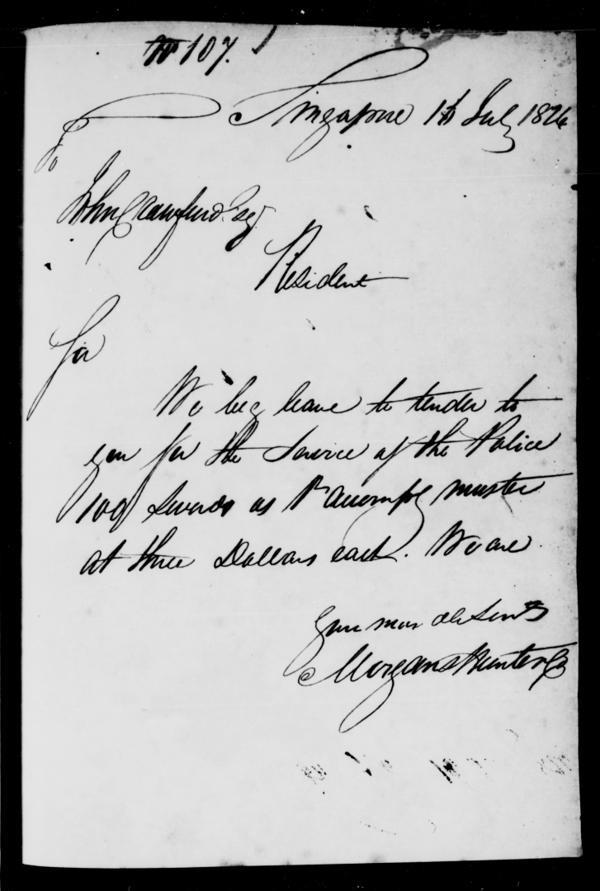 No 107.
Singapore 1st July 1826
To
John Crawfurd Esqr
Resident
Sir
We beg leave to tender to
you for the Service of the Police
100 Swords as Pr accompg muster
at three Dollars each. We are
Your most obt Servts
Morgans Hunter & Co